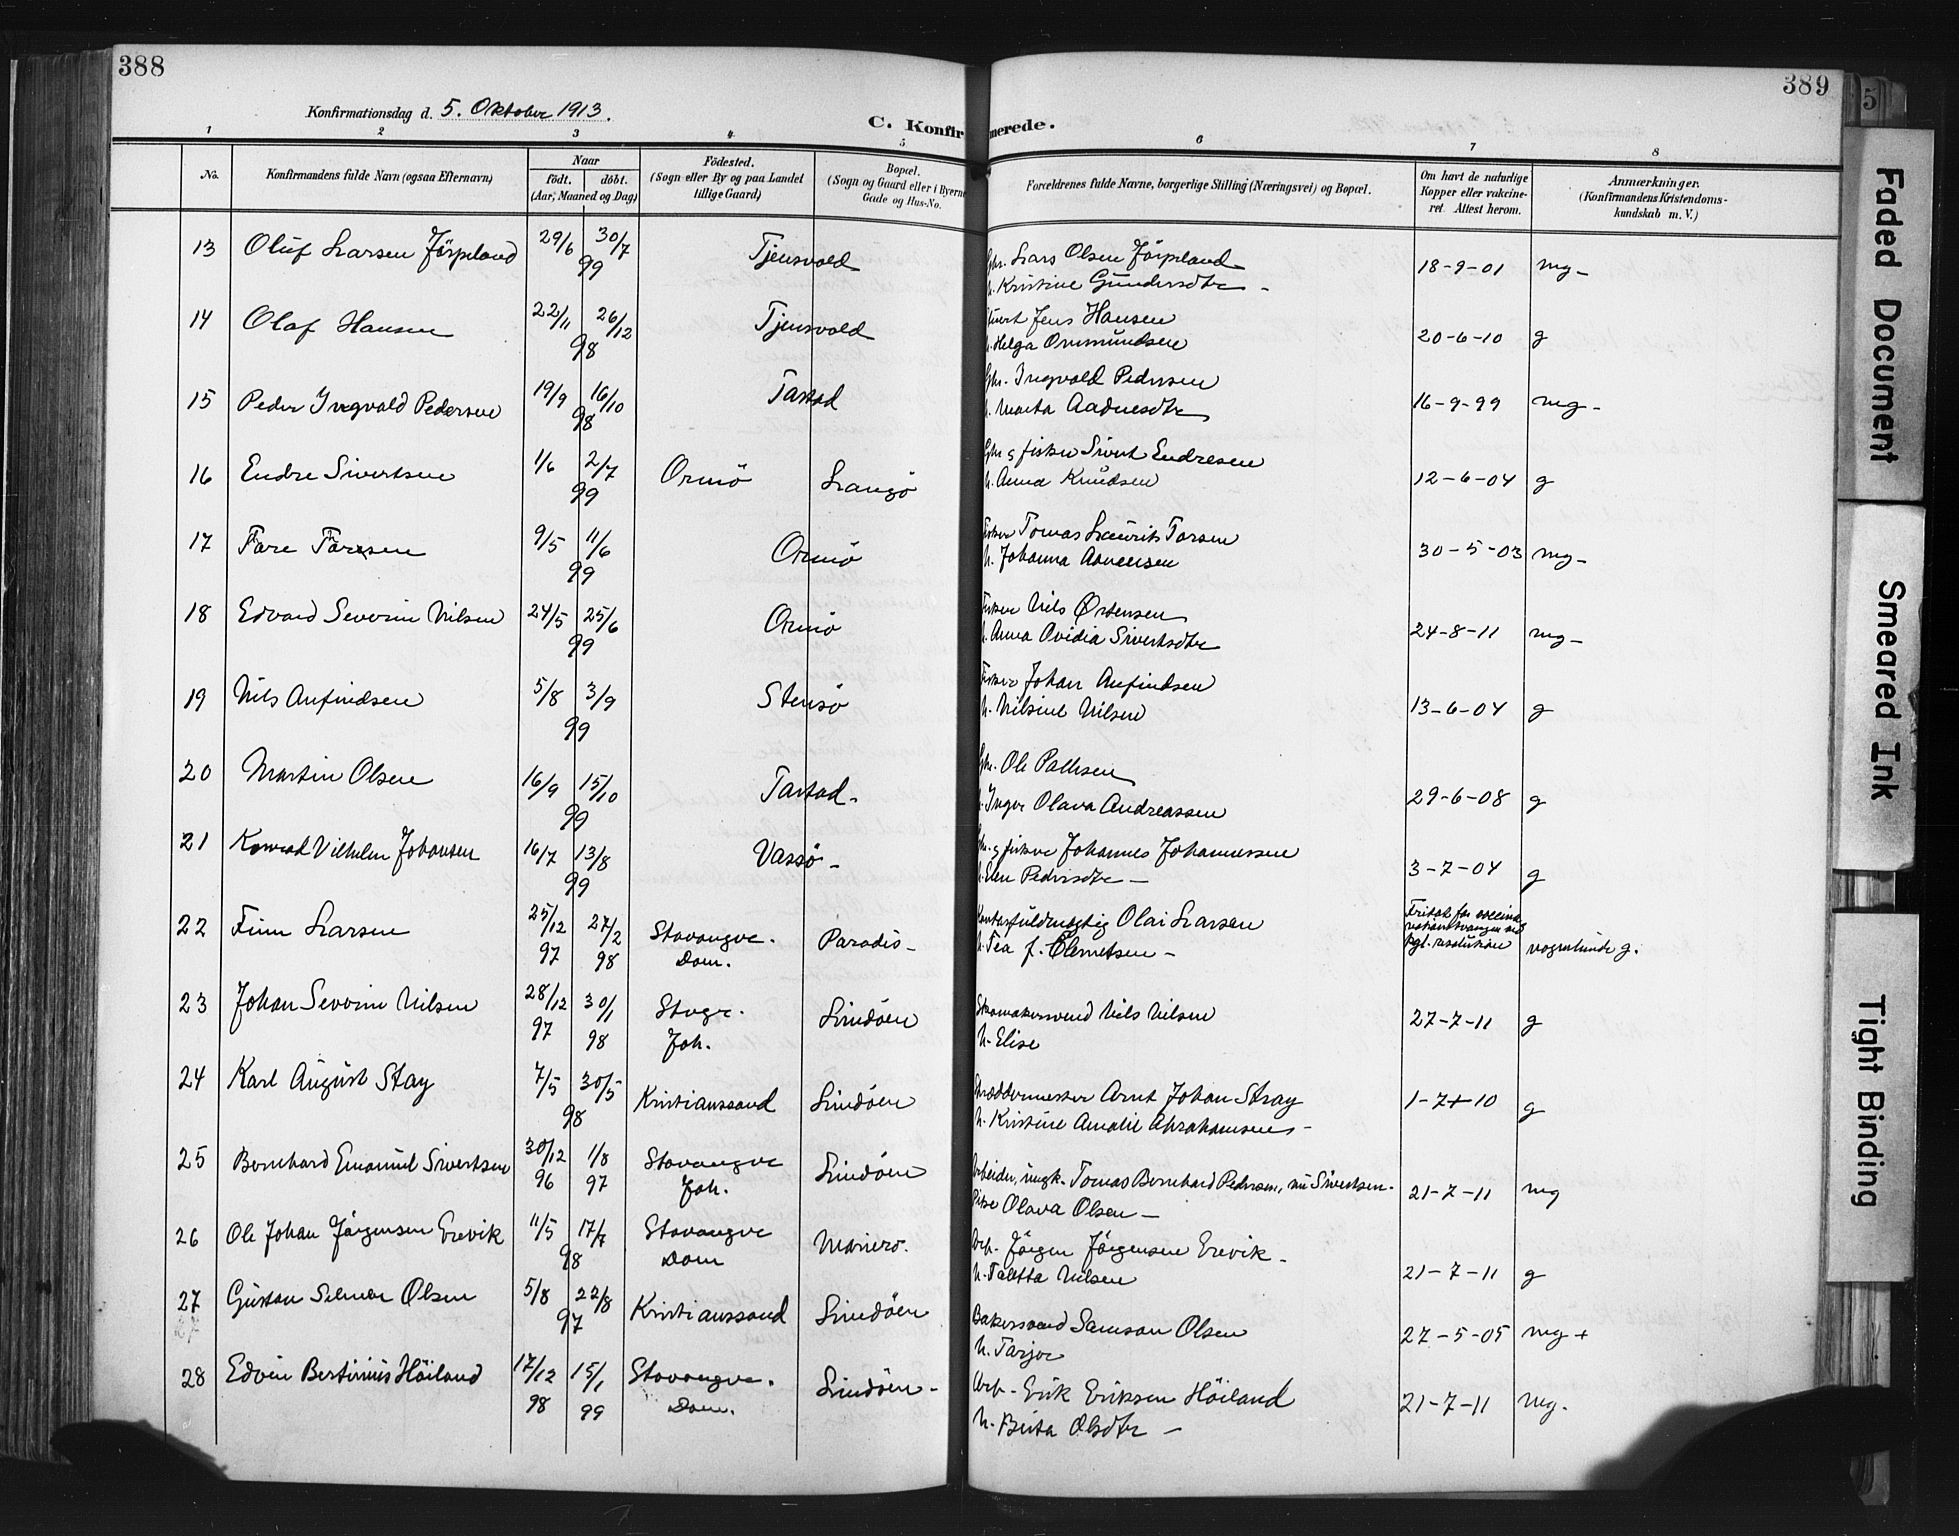 388
389
5
Konfirmationsdag d. 5. Oktober 1913.
C. Konfirmerede.
1 2 3 4 5 6 7 8
No.
Konfirmandens fulde Navn (ogsaa Efternavn)
Naar
födt. döbt.
(Aar, Maaned og Dag)
Födested.
(Sogn eller By og paa Landet
tillige Gaard)
Bopæl.
(Sogn og Gaard eller i Byerne
Gade og Hus-No.
Forældrenes fulde Navne, borgerlige Stilling (Næringsvei) og Bopæl.
Om havt de naturlige
Kopper eller vakcine-
ret. Attest herom.
Anmærkninger.
(Konfirmandens Kristendoms-
kundskab m. V.)
13 Oluf Larsen Jörpeland 29/6 30/7 99 Tjensvold Gbr. Lars Olsen Jörpeland
Kristine Gundersdtr - 18-9-01 mg-
14 Olaf Hansen 22/11 26/12 98 Tjensvold Jens Hansen
Helga Ommundsen 20-6-10 g
15 Peder Ingvald Pedersen 19/9 16/10 98 Tastad Gbr. Ingvald Pedersen
Marta Aadnesdtr 16-9-99 mg-
16 Endre Sivertsen 1/6 2/7 99 Ormö Langö Gbr g fisker Sivert Endresen
Anna Knudsen 12-6-04 g
17 Tore Toresen 9/5 11/6 99 Ormö Fisker Tomas Laurits Torsen
Johanna 30-5-03 mg-
18 Edvard Severin Nilsen 24/5 25/6 99 Ormö Fisker Nils Østensen
Anna Ovidia Sivertsdtr 24-8-11 mg-
19 Nils Anfindsen 5/8 3/9 99 Stensö Fisker Johan Anfindsen
Nilsine Nilsen 13-6-04 g
20 Martin Olsen 16/9 15/10 99 Tastad. Gbr. Ole
Olava Andreassen 29-6-08 g
21 Konrad Vilhelm Johansen 16/7 13/8 99 Vassö- Gbr. g fisker Johannes Johannessen
Elen Pedersdtr - 3-7-04 g
22 Finn Larsen 25/12 97 27/2 98 Stavanger. Dom. Paradis- Kontorfuldmægtig Olai Larsen
Tea f. Clemetsen -
Fritat for vaccina-
tionstvangen ved
kgl. resolution g.
23 Johan Severin Nilsen 28/12 97 30/1 98 Stvgr. Joh. Lindöen Skomakersvend Nils Nilsen
Elise 27-7-11 g
24 Karl August Stay 7/5 30/5 98 Kristianssand Lindöen Skræddermester Arnt Johan Stray
Kristine Amalie Abrahamsen - 1-7-10 g
25 Bernhard Emanuel Sivertsen 30/12 96 1/8 97 Stavanger Joh. Lindöen Arbeider, ungk. Tomas Bernhard Pedersen, nu Sivertsen.
Pike Olava Olsen - 21-7-11 mg
26 Ole Johan Jörgensen Erevik 11/5 17/7 98 Stavanger Dom Mariero. Arb. Jörgen Jörgensen Erevik -
Taletta Nilsen 21-7-11 g
27 Gustav Selmer Olsen 5/8 22/8 97 Kristianssand Lindöen Bakersvend Samson Olsen
Tarjer 27-5-05 mg +
28 Edvin Bertinius Höiland 17/12 98 15/1 99 Stavanger. Dom. Lindöen- Arb- Erik Eriksen Höiland
Berta Olsdtr - 21-7-11 mg-
Faded Document
Smeared Ink
Tight Binding